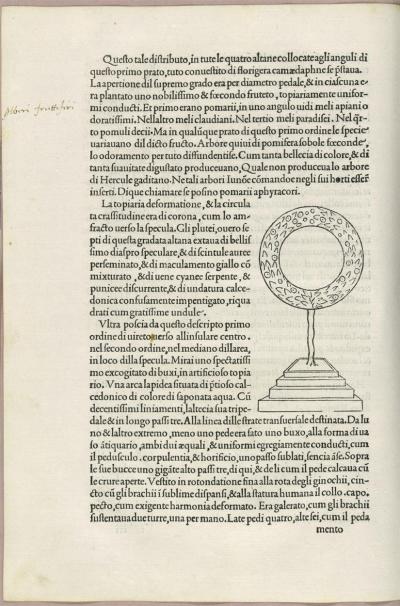 Questo tale distributo, in tute le quatro altane collocate agli anguli di
questo primo prato, tuto conuestito di florigera camædaphne se p̃staua.
La apertione dil supremo grado era per diametro pedale, & in ciascuna e-
ra plantato uno nobilissimo & fœcondo fruteto, topiariamente unifor-
mi conducti. Et primo erano pomarii, in uno angulo uidi meli apiani o
doratissimi. Nellaltro meli claudiani. Nel tertio meli paradisei. Nel q̃r-
to pomuli decii. Ma in qualũque prato di questo primo ordine le specie
uariauano dil dicto fructo. Arbore quiui di pomifera sobole fœconde,
lo odoramento per tuto diffundentise. Cum tanta bellecia di colore, & di
tanta suauitate di gusto produceuano, Quale non produceua lo arbore
di Hercule gaditano. Ne tali arbori Iunõe cõmando e negli sui horti esseř
inserti. Dique chiamare se posino pomarii aphyracori.
La topiaria deformatione, & la circula
ta crassitudine era di corona, cum lo am-
fracto uerso la specula. Gli plutei, ouero se
pti di questa gradata altana extaua di bellis
simo diaspro speculare, & di scintule auree
perseminato, & di maculamento giallo cũ
mixturato, & di uene cyanee serpente, &
punicee discurrente, & di undatura calce-
donica confusamente impentigato, riqua
drati cum gratissime undule.
Vltra poscia da questo descripto primo
ordine di uireto uerso all insulare centro.
nel secondo ordine, nel mediano dillarea,
in loco dilla specula. Mirai uno spectatissi
mo excogitato di buxi, in artificioso topia
rio. Vna arca lapidea situata di p̃tioso cal-
cedonico di colore di saponata aqua. Cũ
decentissimi liniamenti, laltecia sua tripe-
dale & in longo passi tre. Alla linea dille strate transuersale destinata. Da lu
no & laltro extremo, meno uno pede era sato uno buxo, alla forma di ua
so ãtiquario, ambi dui æquali, & uniformi egregiamente conducti, cum
il pedusculo. corpulentia, & horificio, uno passo sublati, sencia ãse. Sopra
le sue bucce uno gigãte alto passi tre, di qui, & de li cum il pede calcaua cũ
le crure aperte. Vestito in rotondatione fina alla rota degli ginochii, cin-
cto cũ gli brachii i sublime dispansi, & alla statura humana il collo. capo.
pecto, cum exigente harmonia deformato. Era galerato, cum gli brachii
sustentaua due turre, una per mano. Late pedi quatro, alte sei, cum il peda
mento